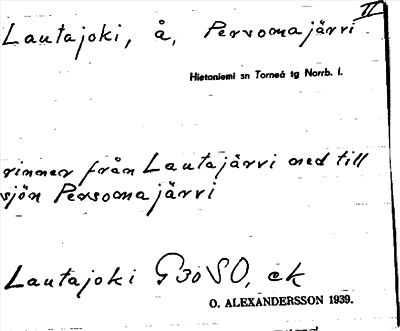 II
Lautajoki, å, Persomajärvi
Hietaniemi sn Torneå tg Norrb. l.
rinner från Lautajärvi ned till
sjön Persomajärvi
Lautajoki G30 SO, ek
O. ALEXANDERSSON 1939.